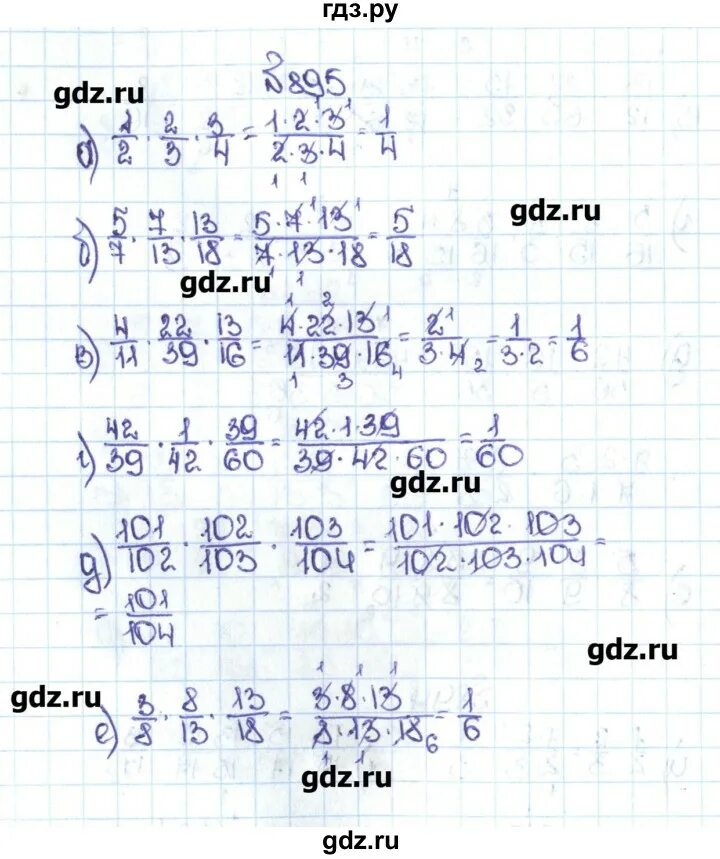 гдз.ру
№895
gdz.ru
а) 1/2 · 2/3 · 3/4 = 1·2·3/2·3·4 = 1/4
gdz.ru
б) 5/7 · 7/13 · 13/18 = 5·7·13/7·13·18 = 5/18
gdz.ru
в) 4/11 · 22/39 · 13/16 = 4·22·13/11·39·16 = 2/3·4 = 1/3·2 = 1/6
г) 42/39 · 1/42 · 39/60 = 42·1·39/39·42·60 = 1/60
gdz.ru
д) 101/102 · 102/103 · 103/104 = 101·102·103/102·103·104 =
= 101/104
gdz.ru
gdz.ru
е) 3/8 · 8/13 · 13/18 = 3·8·13/8·13·18 = 1/6
gdz.ru
gdz.ru